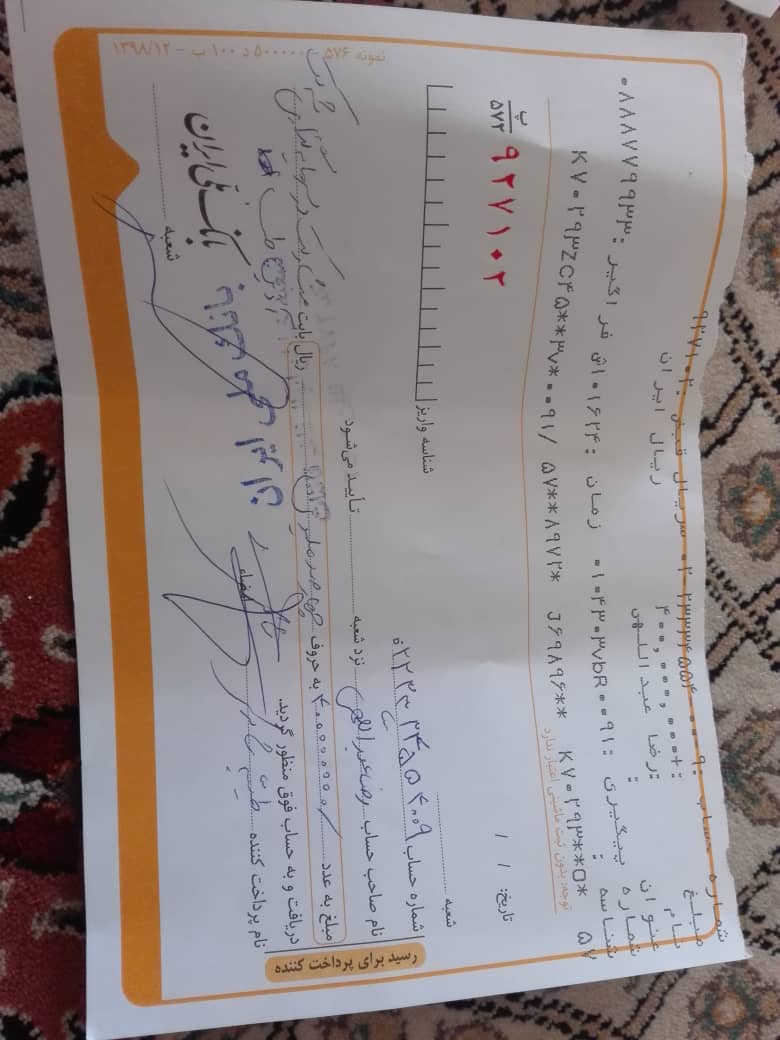 شماره حساب :۰۲-۲۳۳۳۴۵۵۴-۰۰۹ سریال قبض :۹۲۷۱۰۲
مبلغ :+۴۰۰,۰۰۰,۰۰۰ ریال ایران
نام :رضا عبداللهی
عنوان :
شماره پیگیری :۰۱۰۴۳۰۳vbR۰۰۹۱ زمان :۱۰۱۶۲۴ش فراگیر :۰۸۸۸۷۷۹۹۳۳
شناسه :
۵۷ K۷۰۲۹۳**O* J۶۹۸۹۶** ۵۷**۸۹۷۲* /K۷۰۲۹۳ZC۴۵**۳۷*۰۰۹۱
توجه: بدون ثبت ماشینی اعتبار ندارد
پ/۵۷۲ ۹۲۷۱۰۲
تاریخ: / /
شعبه
شناسه واریز
رسید برای پرداخت کننده
شماره حساب
نام صاحب حساب رضا عبداللهی نزد شعبه تأیید می‌شود
مبلغ به عدد به حروف چهارصد میلیون ریال بابت مشارکت در سرمایه گذاری شرکت
طب
دریافت و به حساب فوق منظور گردید.
نام پرداخت کننده طیبه امضاء
بانک ملی ایران
بانک ملّی ایران
شعبه